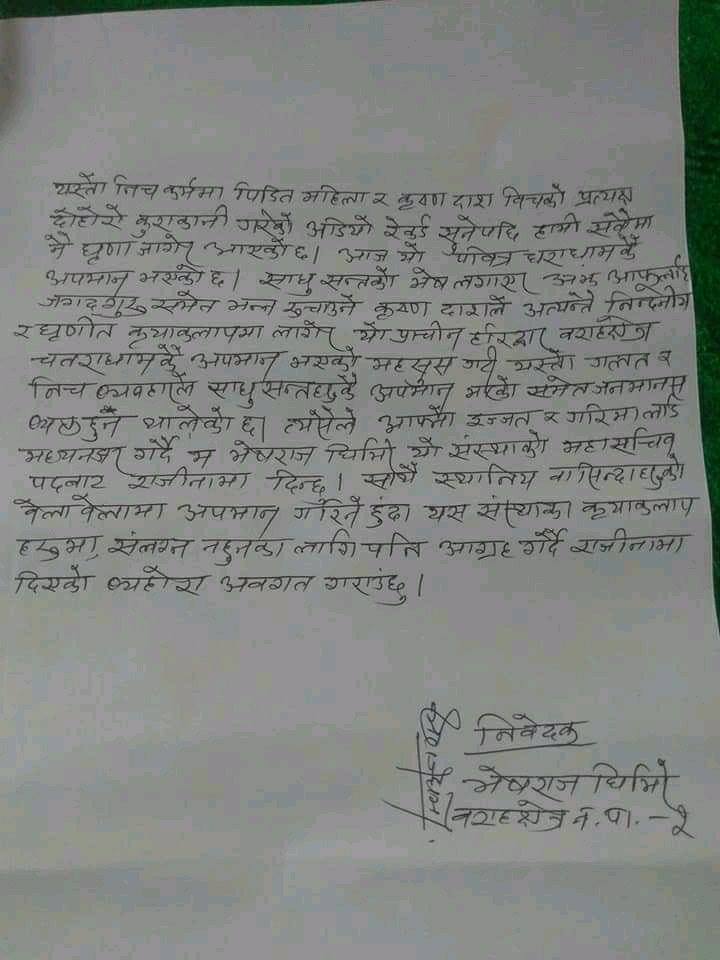 यस्तो निच कर्ममा पिडित महिला र कृष्ण दाश विचको प्रत्यक्ष
दोहोरो कुराकानी गरेको अडियो रेकर्ड सुनेपछि हामी सवैमा
नै घृणा जागेर आएको छ। आज यो पवित्र चराधामकै
अपमान भएको छ। साधु सन्तको भेष लगाएर अझ आफूलाई
जगदगुरु समेत भन्न रुचाउने कृष्ण दाशले अत्यन्तै निन्दनीय
र घृणीत कृयाकलापमा लागेर यो प्राचीन हरिद्वार वराहक्षेत्र
चतराधामकै अपमान भएको महसुस गरी यस्तो गलत र
निच व्यवहारले साधु सन्तहरुकै अपमान भएको समेत जनमानस
व्यक्त हुन थालेको छ। त्यसैले आफ्नो इज्जत र गरिमा लाई
मध्यनजर गर्दै म भेषराज घिमिरे यो संस्थाको महासचिव
पदबाट राजीनामा दिन्छु। साथै स्थानिय वासिन्दाहरुको
वेला वेलामा अपमान गरिने हुंदा यस संस्थाका कृयाकलाप
हरुमा संलग्न नहुनका लागि पनि आग्रह गर्दै राजीनामा
दिएको व्यहोरा अवगत गराउंछु।
निवेदक
भेषराज घिमिरे
वराहक्षेत्र न.पा. -१